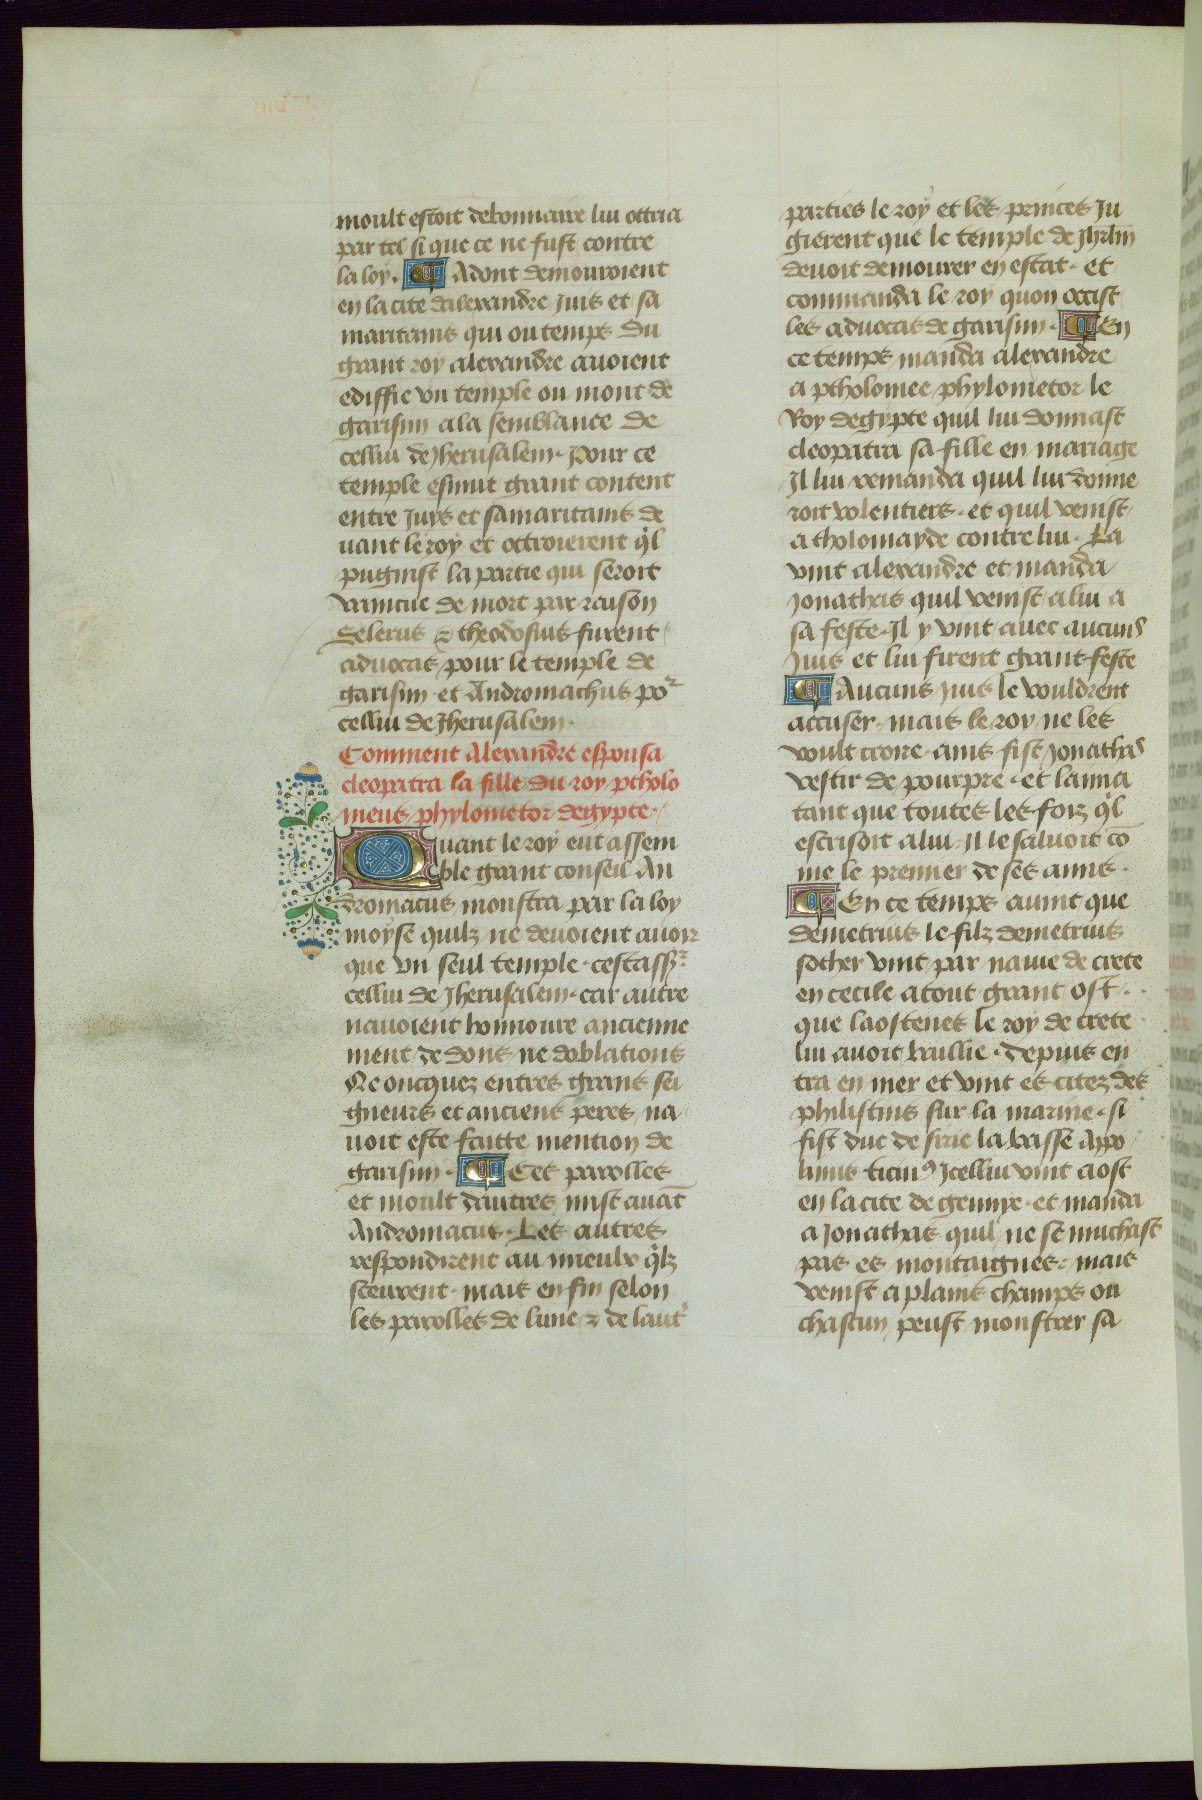 moult estoit debonnaire lui ottria
par tel si que ce ne fust contre
la loy. Adont demouroient
en la cite dalexandre juis et sa
maritains qui ou temps du
grant roy alexandre avoient
ediffie vn temple ou mont de
garisim a la semblance de
cellui de Jherusalem. Pour ce
temple esmut grant content
entre Juys et samaritains de
uant le roy et ottroierent ql
pugnist la partie qui seroit
vaincue de mort par raison
Selerus ⁊ theodosius furent
aduocas pour le temple de
garisim et Andromachus por
cellui de Jherusalem.
Comment Alexandre espousa
cleopatra la fille du roy ptholo
meus phylometor degypte.
Quant le roy eut assem
ble grant conseil An
dromacus monstra par la loy
moyse quilz ne deuoient auoir
que vn seul temple. cestassr
cellui de Jherusalem. car autre
nauoient honnoure ancienne
ment de dons ne doblations
Ne oncquez entres grans sei
gneurs et anciens peres na
uoit este faitte mention de
garisim. Ces parolles
et moult dautres mist auāt
Andromacus. Les autres
respondirent au mieulx qlz
sceurent. mais en fin selon
les parolles de lune ⁊ de laut
parties le roy et les princes Ju
gierent que le temple de Jhrlm
deuoit demourer en estat. et
commanda le roy quon occist
les aduocas de garisim. En
ce temps manda alexandre
a ptholomee phylometor le
Roy degypte quil lui donnast
cleopatra sa fille en mariage
Il lui remanda quil lui donne
roit volentiers. et quil venist
a tholomayde contre lui. La
vint alexandre et manda
Jonathas quil venist a lui a
sa feste. Il y vint auec aucuns
Juis et lui firent grant feste
Aucuns juis le vouldrent
accuser. mais le roy ne les
voult croire. ains fist Jonathas
vestir de pourpre. et lama
tant que toutes les foiz ql
escrisoit a lui. Il le saluoit cō
me le premier de ses amis.
En ce temps auint que
demetrius le filz demetrius
sother vint par nauie de crete
en cecile a tout grant ost.
que laostenes le roy de crete
lui auoit baillie. depuis en
tra en mer et vint es citez des
philistins sur la marine. si
fist duc de sirie la basse Appo
linus ticius Icellui vint a ost
en la cite de gennye. et manda
a Jonathas quil ne se muchast
pas es montaignes. mais
venist a plains champs ou
chascun peust monstrer sa